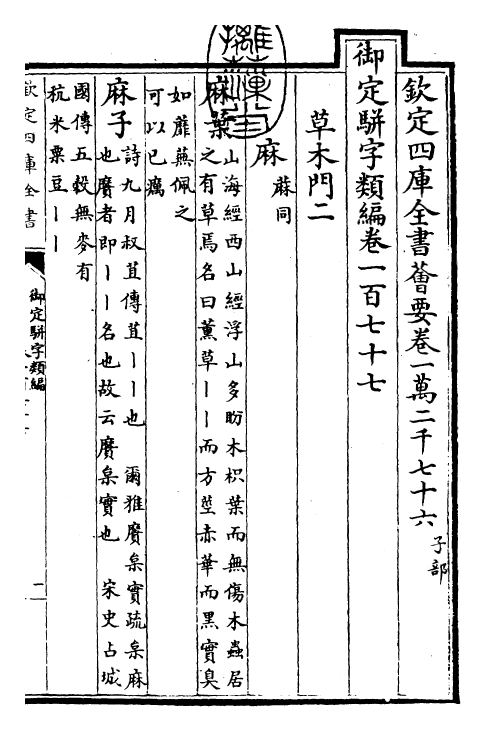 欽定四庫全書薈要卷一萬二千七十六 子部
御定駢字類編卷一百七十七
草木門二
麻 蔴同
麻葉 山海經西山經浮山多盼木枳葉而無傷木蟲居
之有草焉名曰薰草丨丨而方莖赤華而黑實臭
如蘼蕪佩之
可以已癘
麻子 詩九月叔苴傳苴丨丨也 爾雅黂枲實疏枲麻
也黂者即丨丨名也故云黂枲實也 宋史占城
國傳五穀無麥有
秔米粟豆丨丨
欽定四庫全書
御定駢字類編